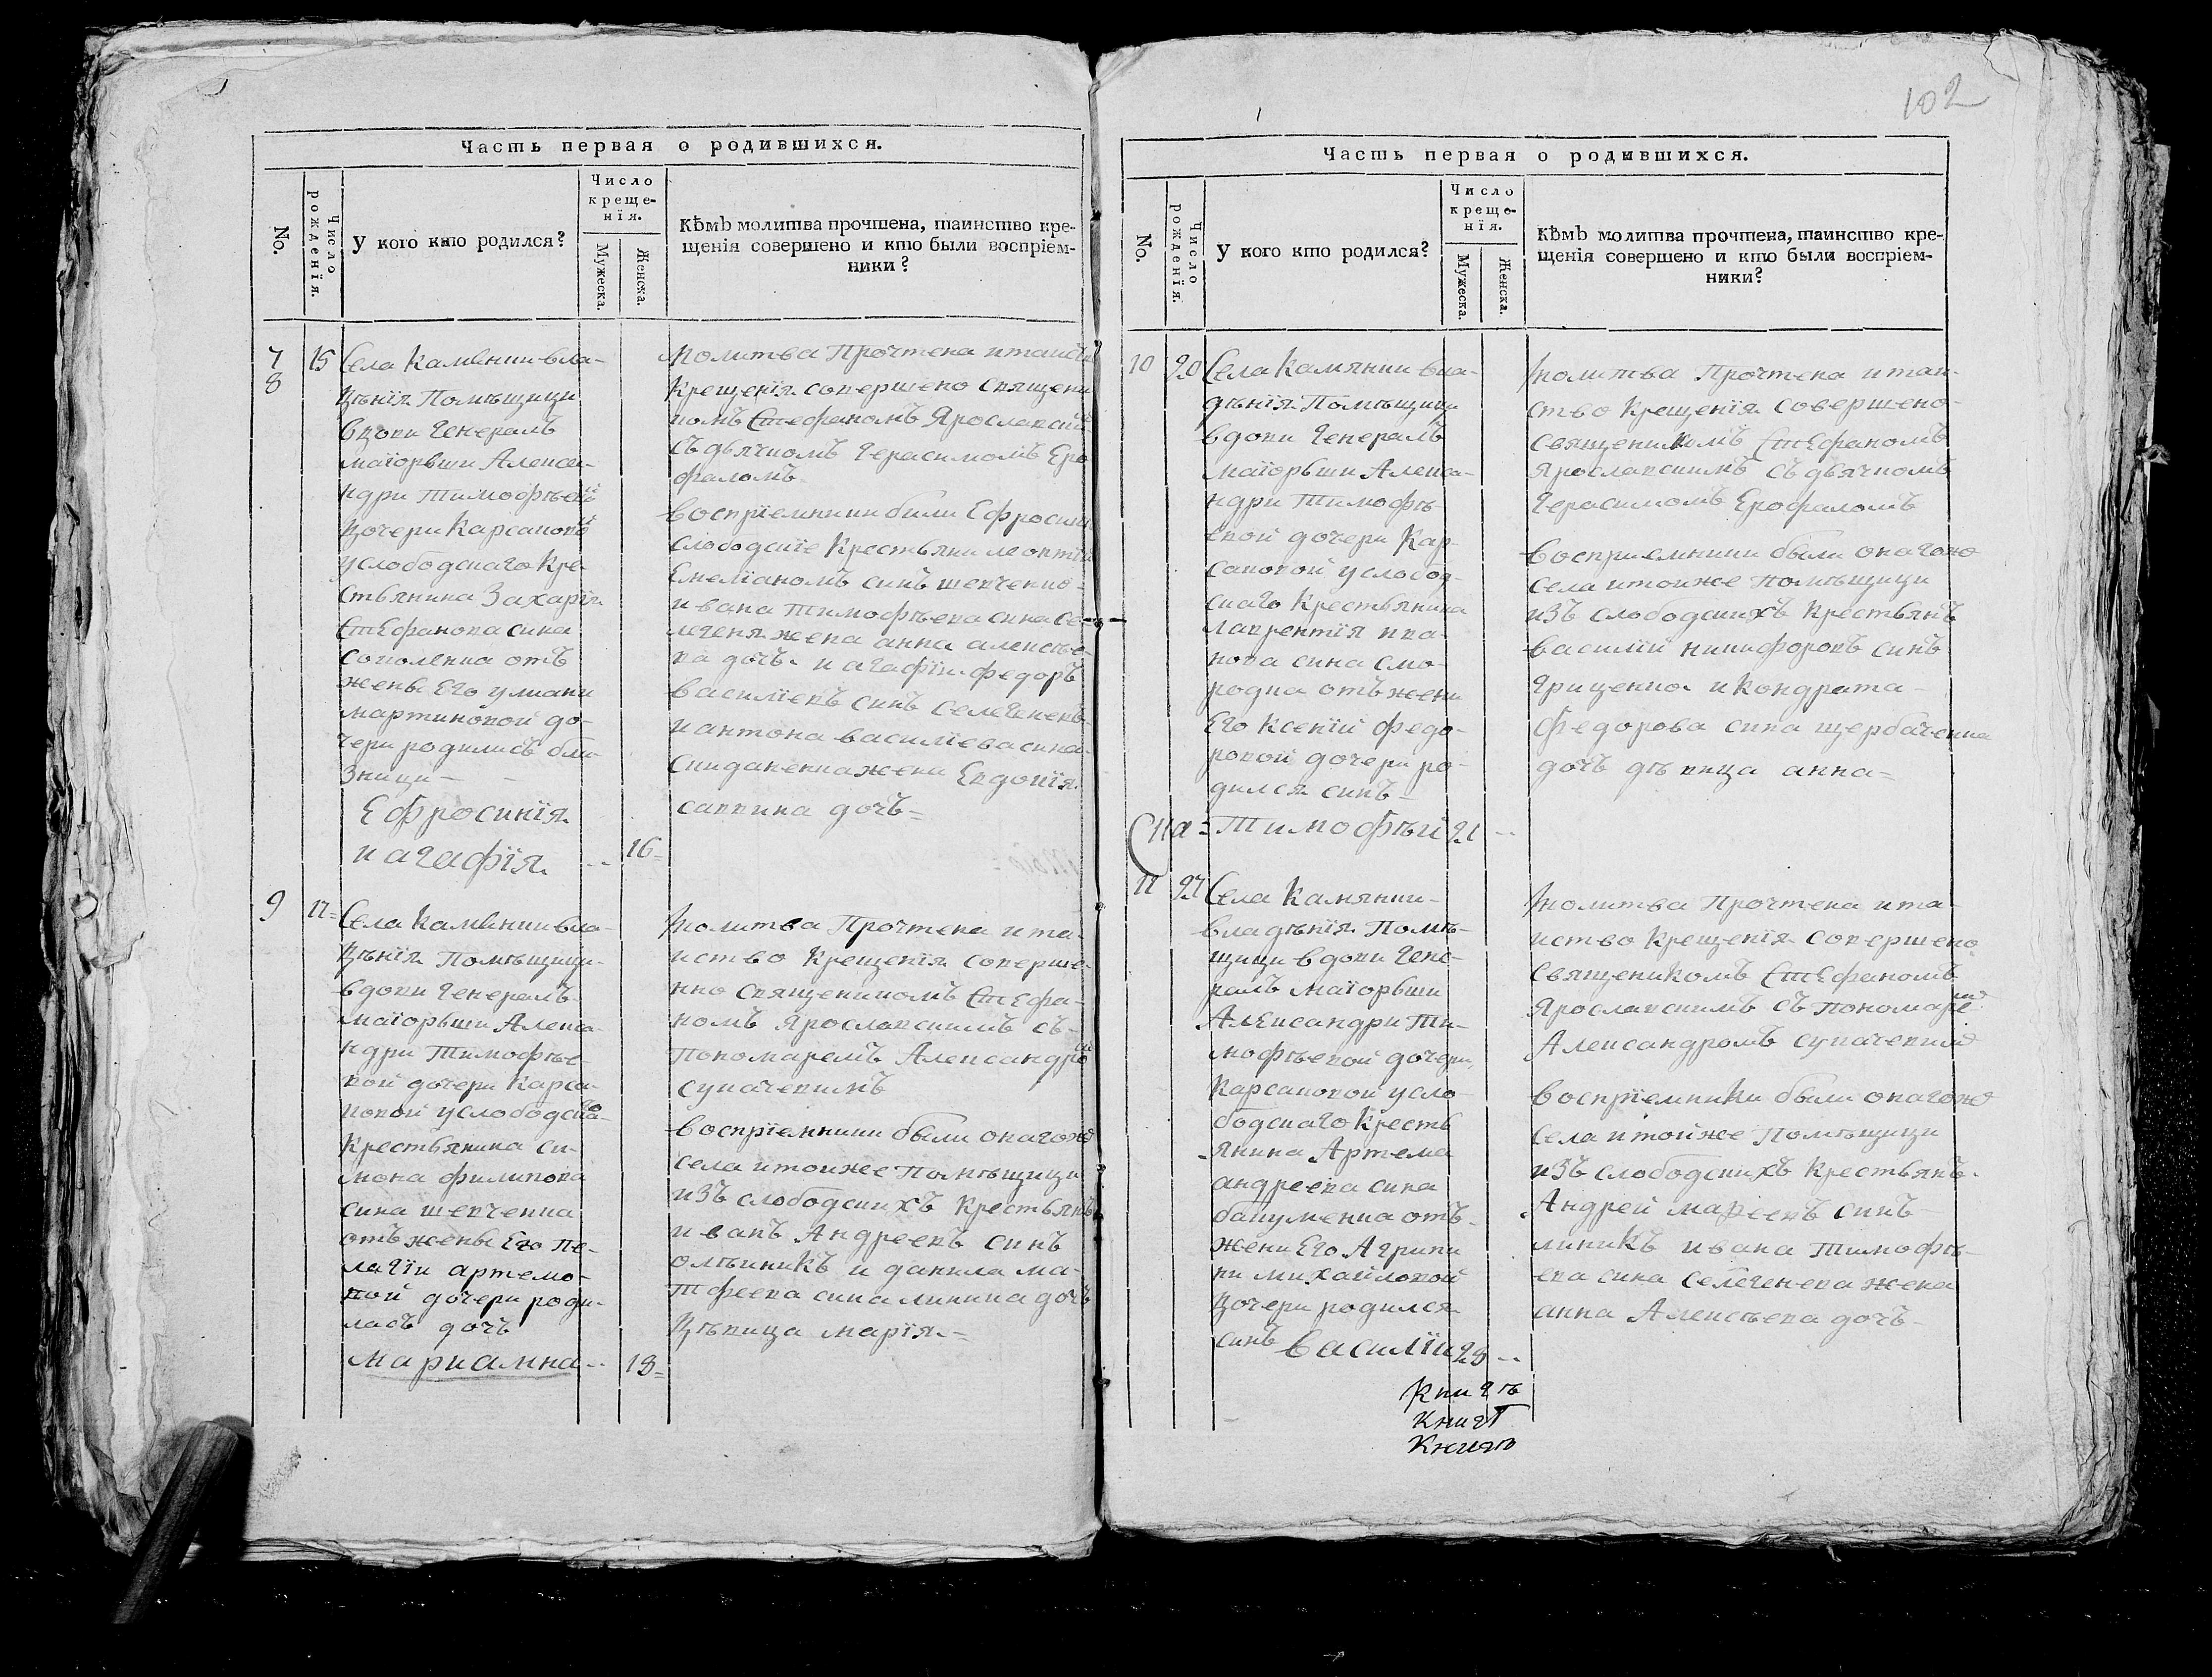 102
Часть первая о родившихся.
No.
Число рожденїя.
У кого кто родился?
Число крещенїя.
Мужеска.
Женска.
Кѣмъ молитва прочтена, таинство кре-
щенїя совершено и кто были воспрїем-
ники?
7
8
15
Села Камянки вла-
дѣнїя Помѣщици
вдови Генералъ
маїорьши Алекса-
ндри Тимофѣевой
дочери Карсаковой
услободскаго Кре-
стьянина Захарїя
Стефанова сина
Соколенка отъ
жены Его улиани
мартиновой до-
чери родились бли-
зници
Ефросинїя
и агафїя
16
Молитва Прочтена и таинство
Крещенїя совершено Священи
комъ Стефаномъ Ярославскимъ
съ дьячкомъ Герасимомъ Еро
фаломъ
воспрїемники били Ефросини
слободскїе Крестьяни леонтїй
Емелїановъ синъ шевченко
ивана Тимофѣева сина Се-
легеня жена анна алексѣе-
ва дочъ и агафїи федоръ
василїевъ синъ селегеневъ
и антона василїева сина
жена Евдокїя
саввина дочъ
9
17
Села Камянки вла-
дѣнїя Помѣщици
вдови Генералъ
маїорьши Алекса-
ндри Тимофѣе-
вой дочери Карса-
ковой услободскаго
Крестьянина си-
мона филипова
сина шевченка
отъ жены Его Пе-
лагїи артемо-
вой дочери роди-
лась дочъ
мариамна
18
Молитва Прочтена и та-
инство Крещенїя соверше-
нно священикомъ Стефа-
номъ Ярославскимъ съ
пономаремъ Александромъ
сукачевимъ
воспрїемники были онагоже
села итоиже Помѣщици
изъ слободскихъ Крестьянъ
иванъ Андреевъ синъ
олѣиникъ и данила ма-
тфеева сина линника дочъ
дѣвица марїя
Часть первая о родившихся.
No.
Число рожденїя.
У кого кто родился?
Число крещенїя.
Мужеска.
Женска.
Кѣмъ молитва прочтена, таинство кре-
щенїя совершено и кто были воспрїем-
ники?
10
20
Села Камянки вла-
дѣнїя Помѣщици
вдови Генералъ
маїорьши Алекса-
ндри Тимофѣ-
евой дочери Кар-
саковой услобод-
скаго Крестьянина
лаврентїя ива-
нова сина смо-
родка отъ жени
Его Ксенїй федо-
ровой дочери ро-
дился синъ
Тимофѣй 21
Молитва Прочтена и таи-
ство Крещенїя совершено
священикомъ Стефаномъ
Ярославскимъ съ дьячкомъ
Герасимомъ Ерофаломъ
восприемники были онагоже
села итоиже помѣщици
изъ слободскихъ Крестьянъ
василїй никифоровъ синъ
Грищенко и Кондрата
федорова сина щербаченка
дочъ дѣвица анна
11
27
Села Камянки
владѣнїя Помѣ-
щици вдови Гене-
ралъ маїорьши
Александри Ти-
мофѣевой дочери
Карсаковой усло-
бодскаго Кресть
янина Артема
андреева сина
бакуменка отъ
жени Его Агрипи
ни михайловой
дочери родился
синъ василїи 28
Молитва Прочтена и та-
инство Крещенїя совершено
Священикомъ Стефаномъ
Ярославскимъ съ пономаремъ
Александромъ сукачевимъ
воспрїемники были онагоже
Села итойже Помѣщици
изъ слободскихъ Крестьянъ
Андрей марковъ синъ
линикъ ивана Тимофѣ-
ева сина селегенева жена
анна Алексѣева дочъ
Книгѣ
Книг